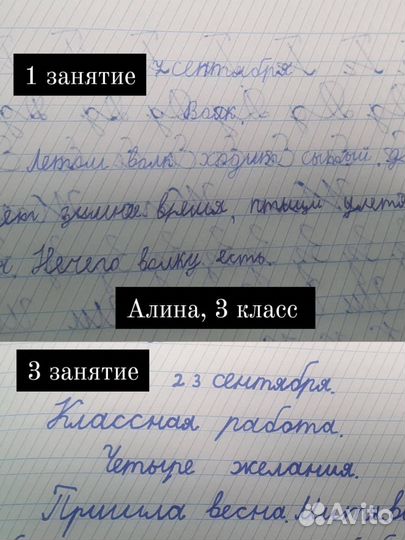 1 занятие
7 сентября
Волк.
Летом волк ходит сытый.
зимнее время, птицы улетя
Нечего волку есть.
Алина, 3 класс
3 занятие
23 сентября.
Классная работа.
Четыре желания.
Пришла весна.
Avito